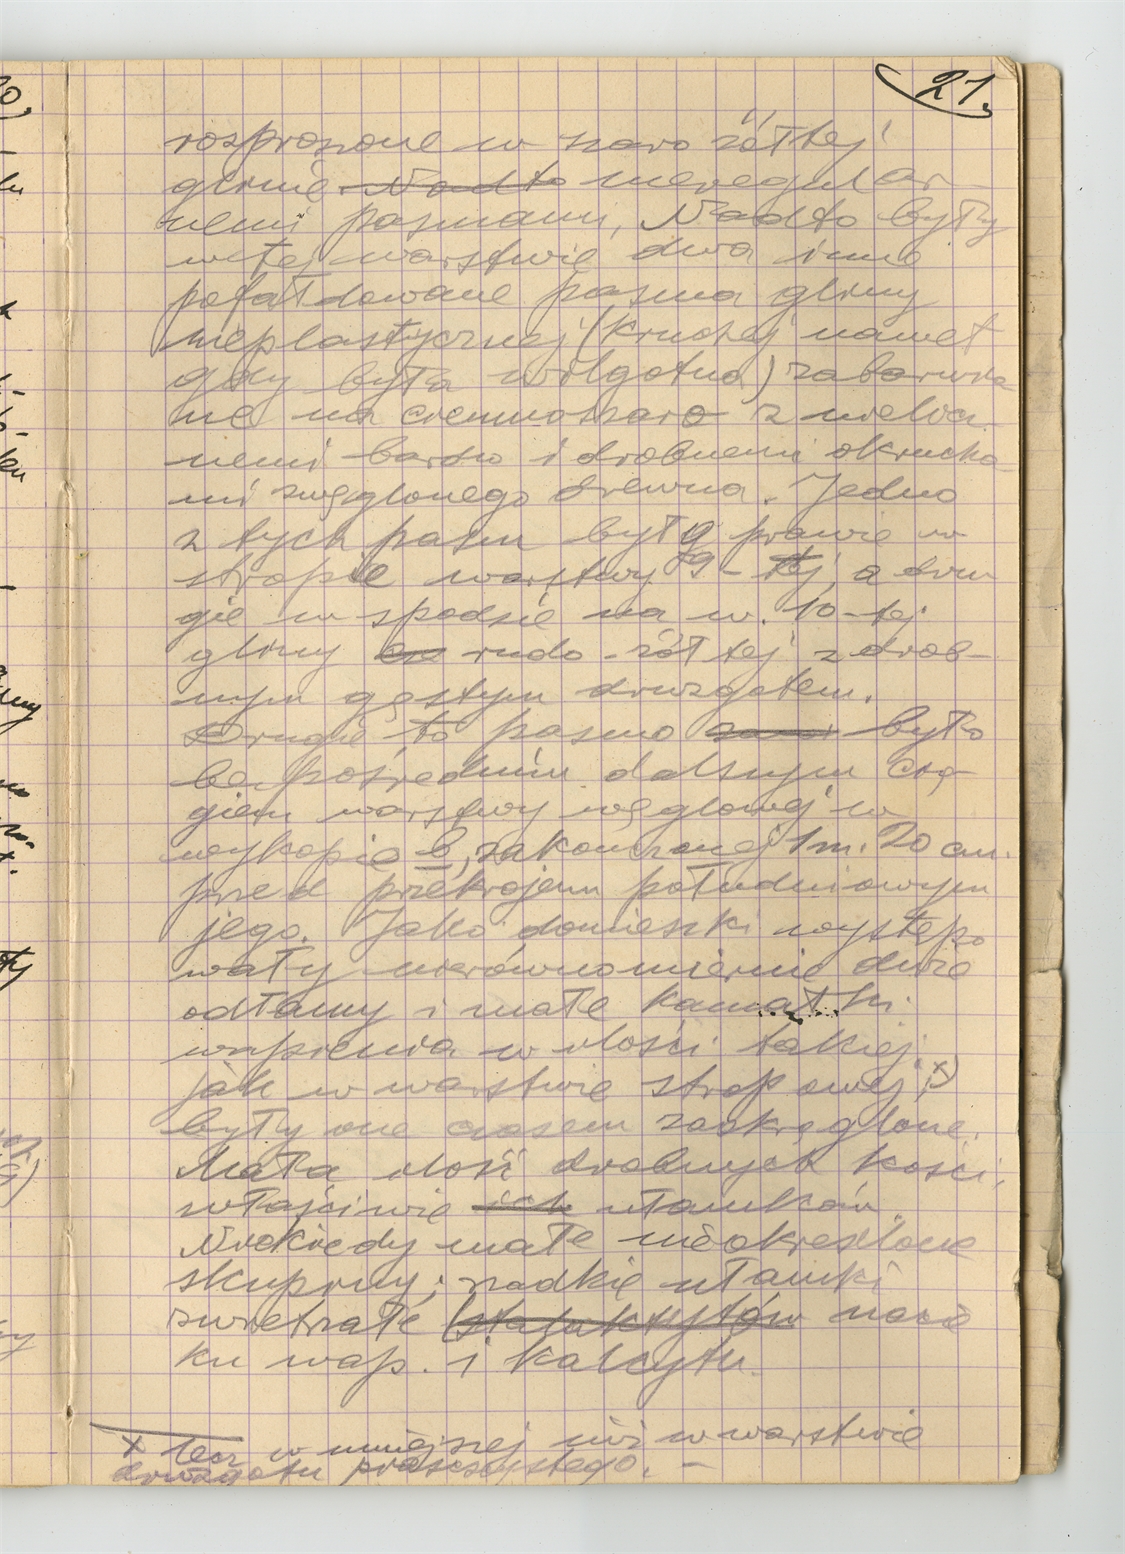 21.
rozproszone w szaro żółtej
glinie ~~Nadto~~ nieregular-
nemi pasmami, Nadto były
w tej warstwie dwa inne
pofałdowane pasma gliny
nieplastycznej (kruchej nawet
gdy była wilgotna) zabarwio
ne na ciemnoszaro z nielicz
nemi bardzo i drobnemi okrucha
mi zwęglonego drewna. Jedno
z tych pasm było prawie w
stropie warstwy 9-tej, a dru
gie w spodzie na w. 10-tej
gliny rudo-żółtej z drob-
nym gęstym druzgotem.
Drugie to pasmo było
bezpośrednim dalszym cią-
giem warstwy węglowej w
wykopie B, zakończonej 1 m. 20 cm.
przed przekrojem południowym
jego. Jako domieszki występo
wały nierównomiernie duże
odłamy i małe kamałki
wapienia w ilości takiej
jak w warstwie stropowej x)
były one czasem zaokrąglone.
Mała ilość drobnych kości,
właściwie ~~ich~~ ułamków.
Niekiedy małe nieokreślone
skupiny; rzadkie ułamki
zwietrzałe (~~stalaktytów~~ nacie
ku wap. i kalcytu.
x lecz w mniejszej niż w warstwie
druzgotu przeczystego. –